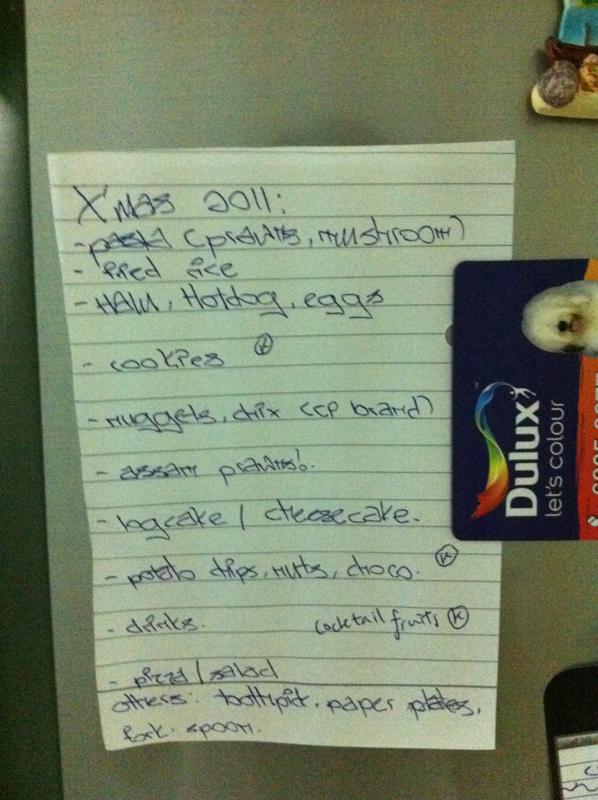 X'mas 2011:
- pasta (prawns, mushroom)
- fried rice
- HAM, Hotdog, eggs
- cookies Ⓚ
- nuggets, chix (CP brand)
- assam prawns!.
- logcake / cheesecake.
- potato chips, nuts, choco. Ⓚ
- drinks. cocktail fruits Ⓚ
- pizza / salad
others: toothpick. paper plates,
fork. spoon.
Dulux
let's colour